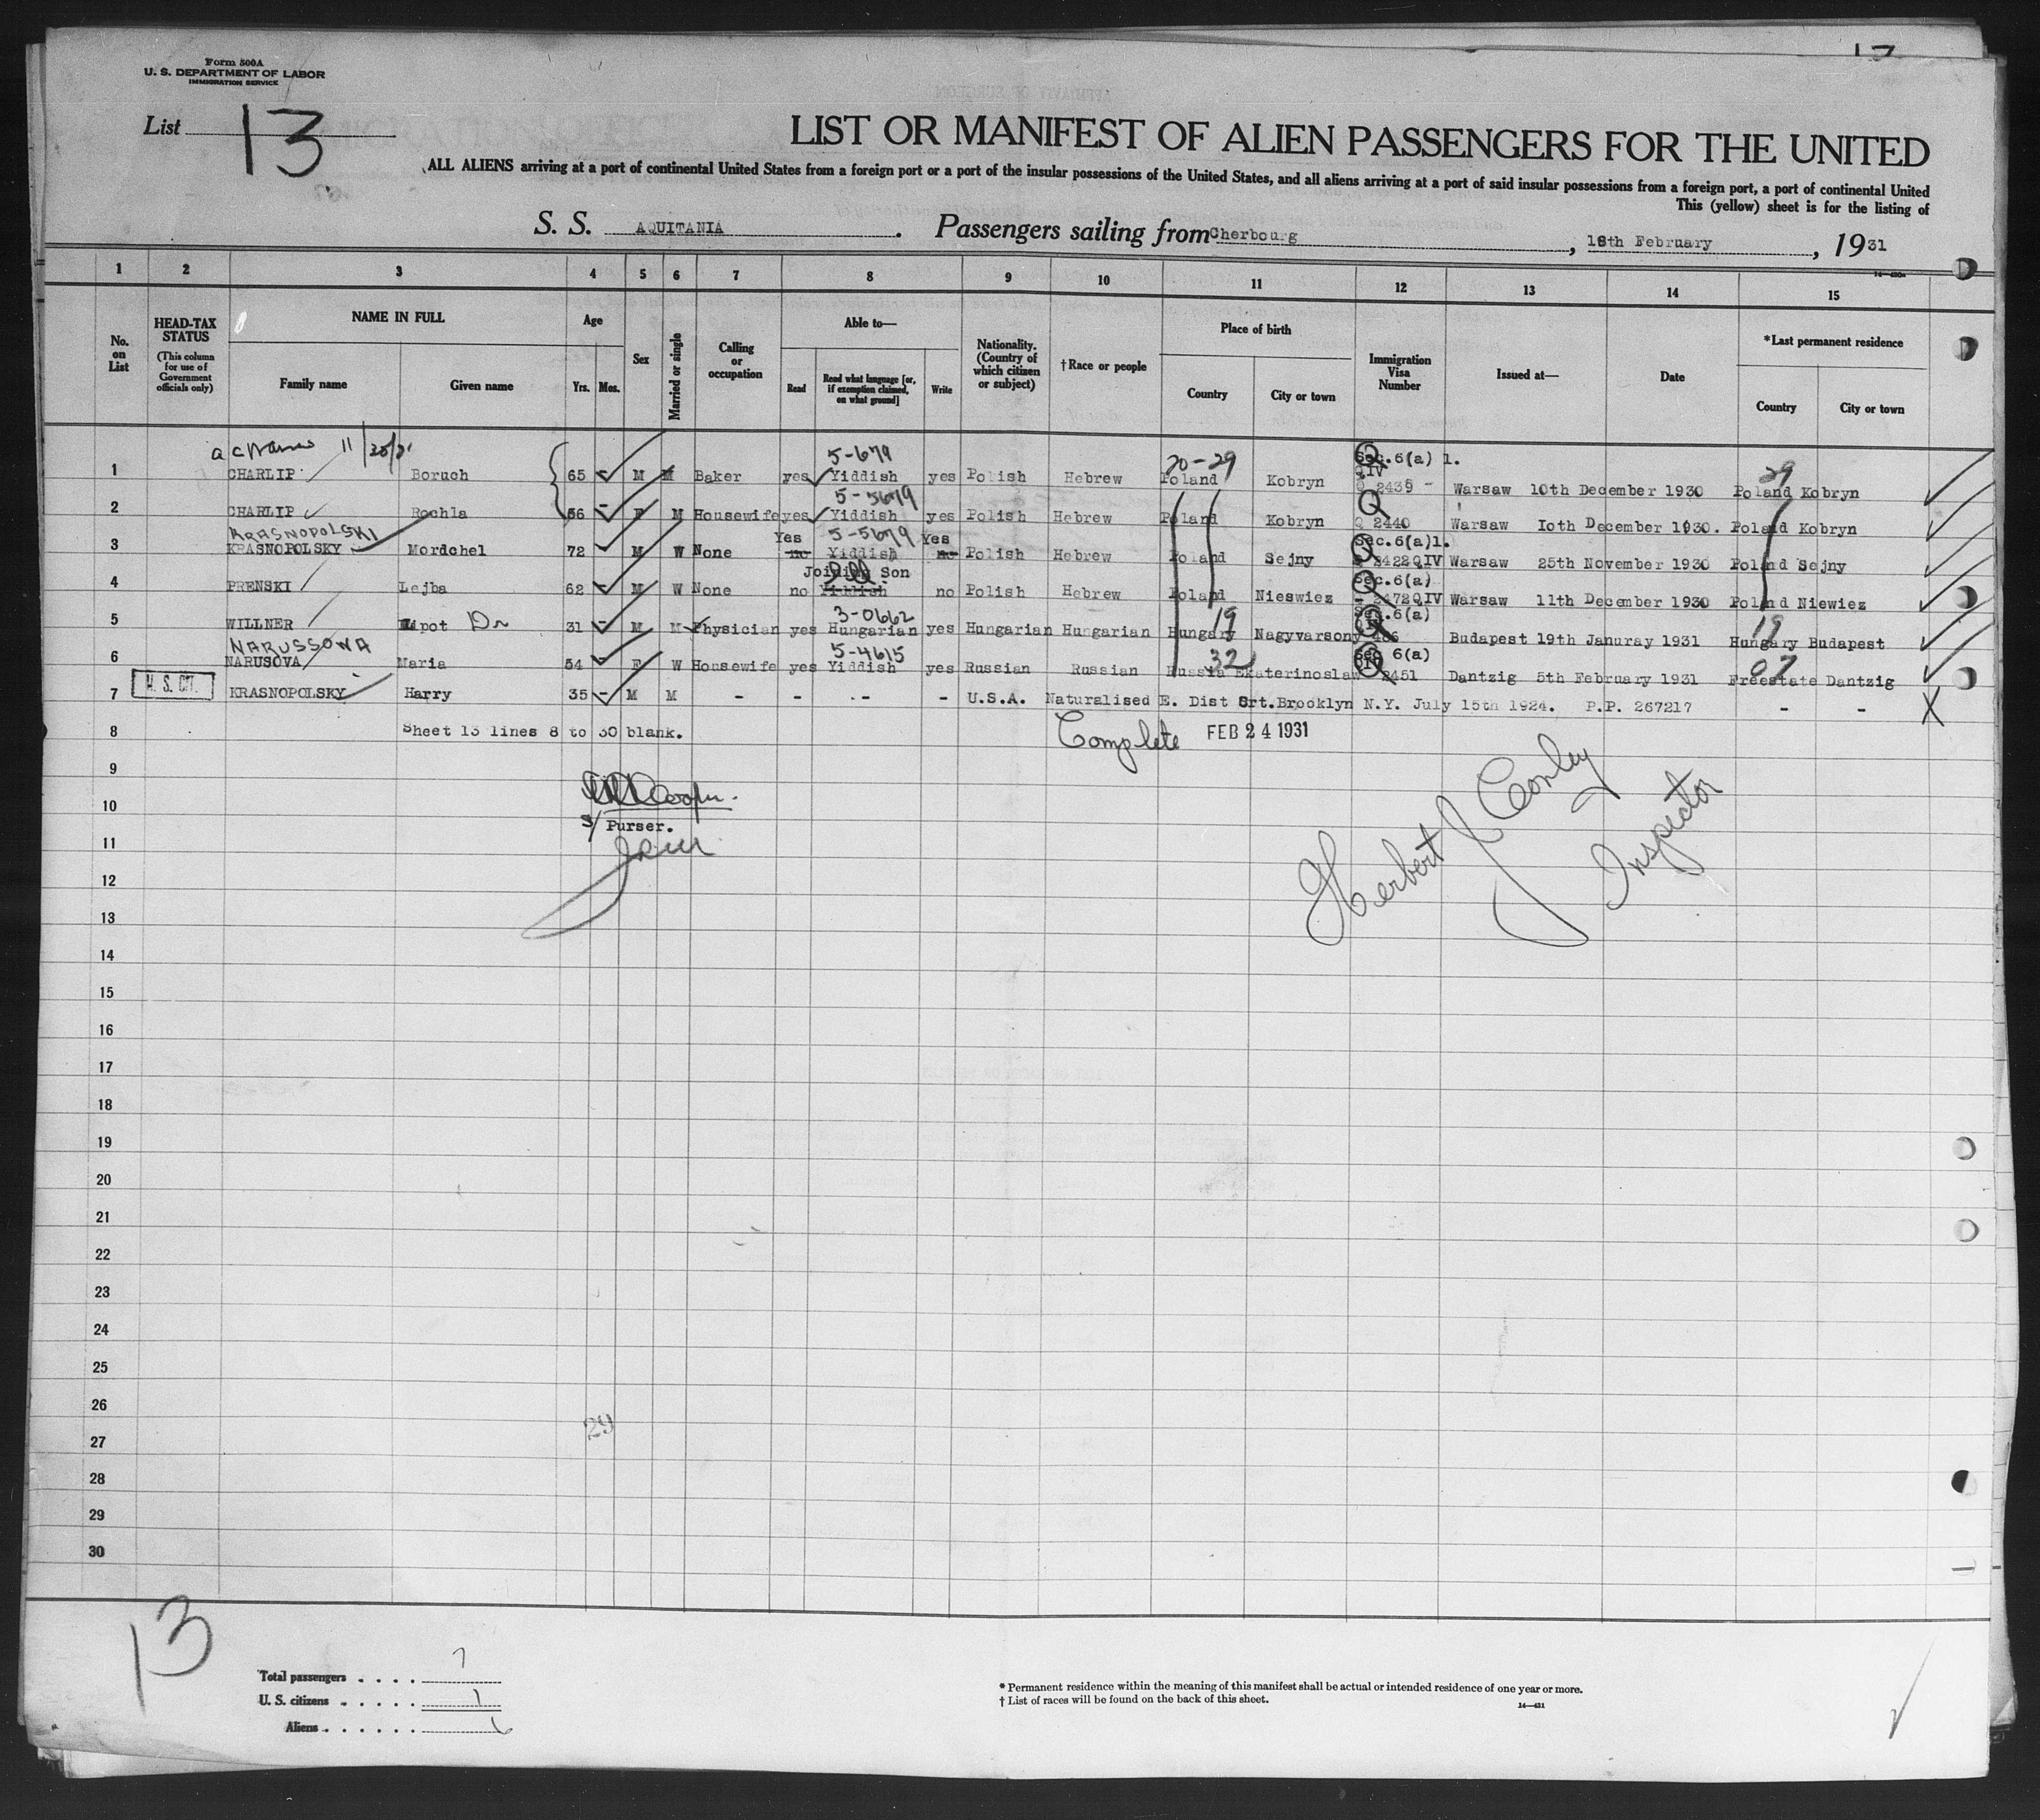 Form 500A
U. S. DEPARTMENT OF LABOR
IMMIGRATION SERVICE
List 13
LIST OR MANIFEST OF ALIEN PASSENGERS FOR THE UNITED
ALL ALIENS arriving at a port of continental United States from a foreign port or a port of the insular possessions of the United States, and all aliens arriving at a port of said insular possessions from a foreign port, a port of continental United
This (yellow) sheet is for the listing of
S. S. AQUITANIA. Passengers sailing from Cherbourg, 18th February, 1931
1 2 3 4 5 6 7 8 9 10 11 12 13 14 15
No. on List
HEAD-TAX STATUS
(This column for use of Government officials only)
NAME IN FULL
Family name
Given name
Age
Yrs. Mos.
Sex
Married or single
Calling or occupation
Able to—
Read
Read what language [or, if exemption claimed, on what ground]
Write
Nationality. (Country of which citizen or subject)
†Race or people
Place of birth
Country
City or town
Immigration Visa Number
Issued at—
Date
*Last permanent residence
Country
City or town
11/25/31 5-679 20-29 Sec.6(a) 1. 29
1 CHARLIP Boruch 65 M M Baker yes Yiddish yes Polish Hebrew Poland Kobryn QIV 2439 - Warsaw 10th December 1930 Poland Kobryn
5-5679 Q
2 CHARLIP Rochla 56 F M Housewife yes Yiddish yes Polish Hebrew Poland Kobryn Q 2440 Warsaw 10th December 1930. Poland Kobryn
KRASNOPOLSKI Yes 5-5679 Yes Sec.6(a)1.
3 KRASNOPOLSKY Mordchel 72 M W None no Yiddish no Polish Hebrew Poland Sejny 2422 QIV Warsaw 25th November 1930 Poland Sejny
Joining Son Sec.6(a)
4 PRENSKI Lejba 62 M W None no Yiddish no Polish Hebrew Poland Nieswiez 2472 QIV Warsaw 11th December 1930 Poland Niewiez
3-0662 19 Sec.6(a) 19
5 WILLNER Lipot Dr 31 M M Physician yes Hungarian yes Hungarian Hungarian Hungary Nagyvarsony 406 Budapest 19th Januray 1931 Hungary Budapest
NARUSSOWA 5-4615 32 Sec 6(a) 07
6 NARUSOVA Maria 54 F W Housewife yes Yiddish yes Russian Russian Russia Ekaterinoslaw QIV 2451 Dantzig 5th February 1931 Freestate Dantzig
7 U. S. CIT. KRASNOPOLSKY Harry 35 - M M - - - - U.S.A. Naturalised E. Dist Crt.Brooklyn N.Y. July 15th 1924. P.P. 267217 - - X
8 Sheet 13 lines 8 to 30 blank. Complete FEB 24 1931
9
10 Cooper.
S/ Purser.
Herbert J Conley
Inspector
11
12
13
14
15
16
17
18
19
20
21
22
23
24
25
26
29
27
28
29
30
13
Total passengers . . . . 7
U. S. citizens . . . . . 1
Aliens . . . . . . 6
* Permanent residence within the meaning of this manifest shall be actual or intended residence of one year or more.
† List of races will be found on the back of this sheet.
14—431